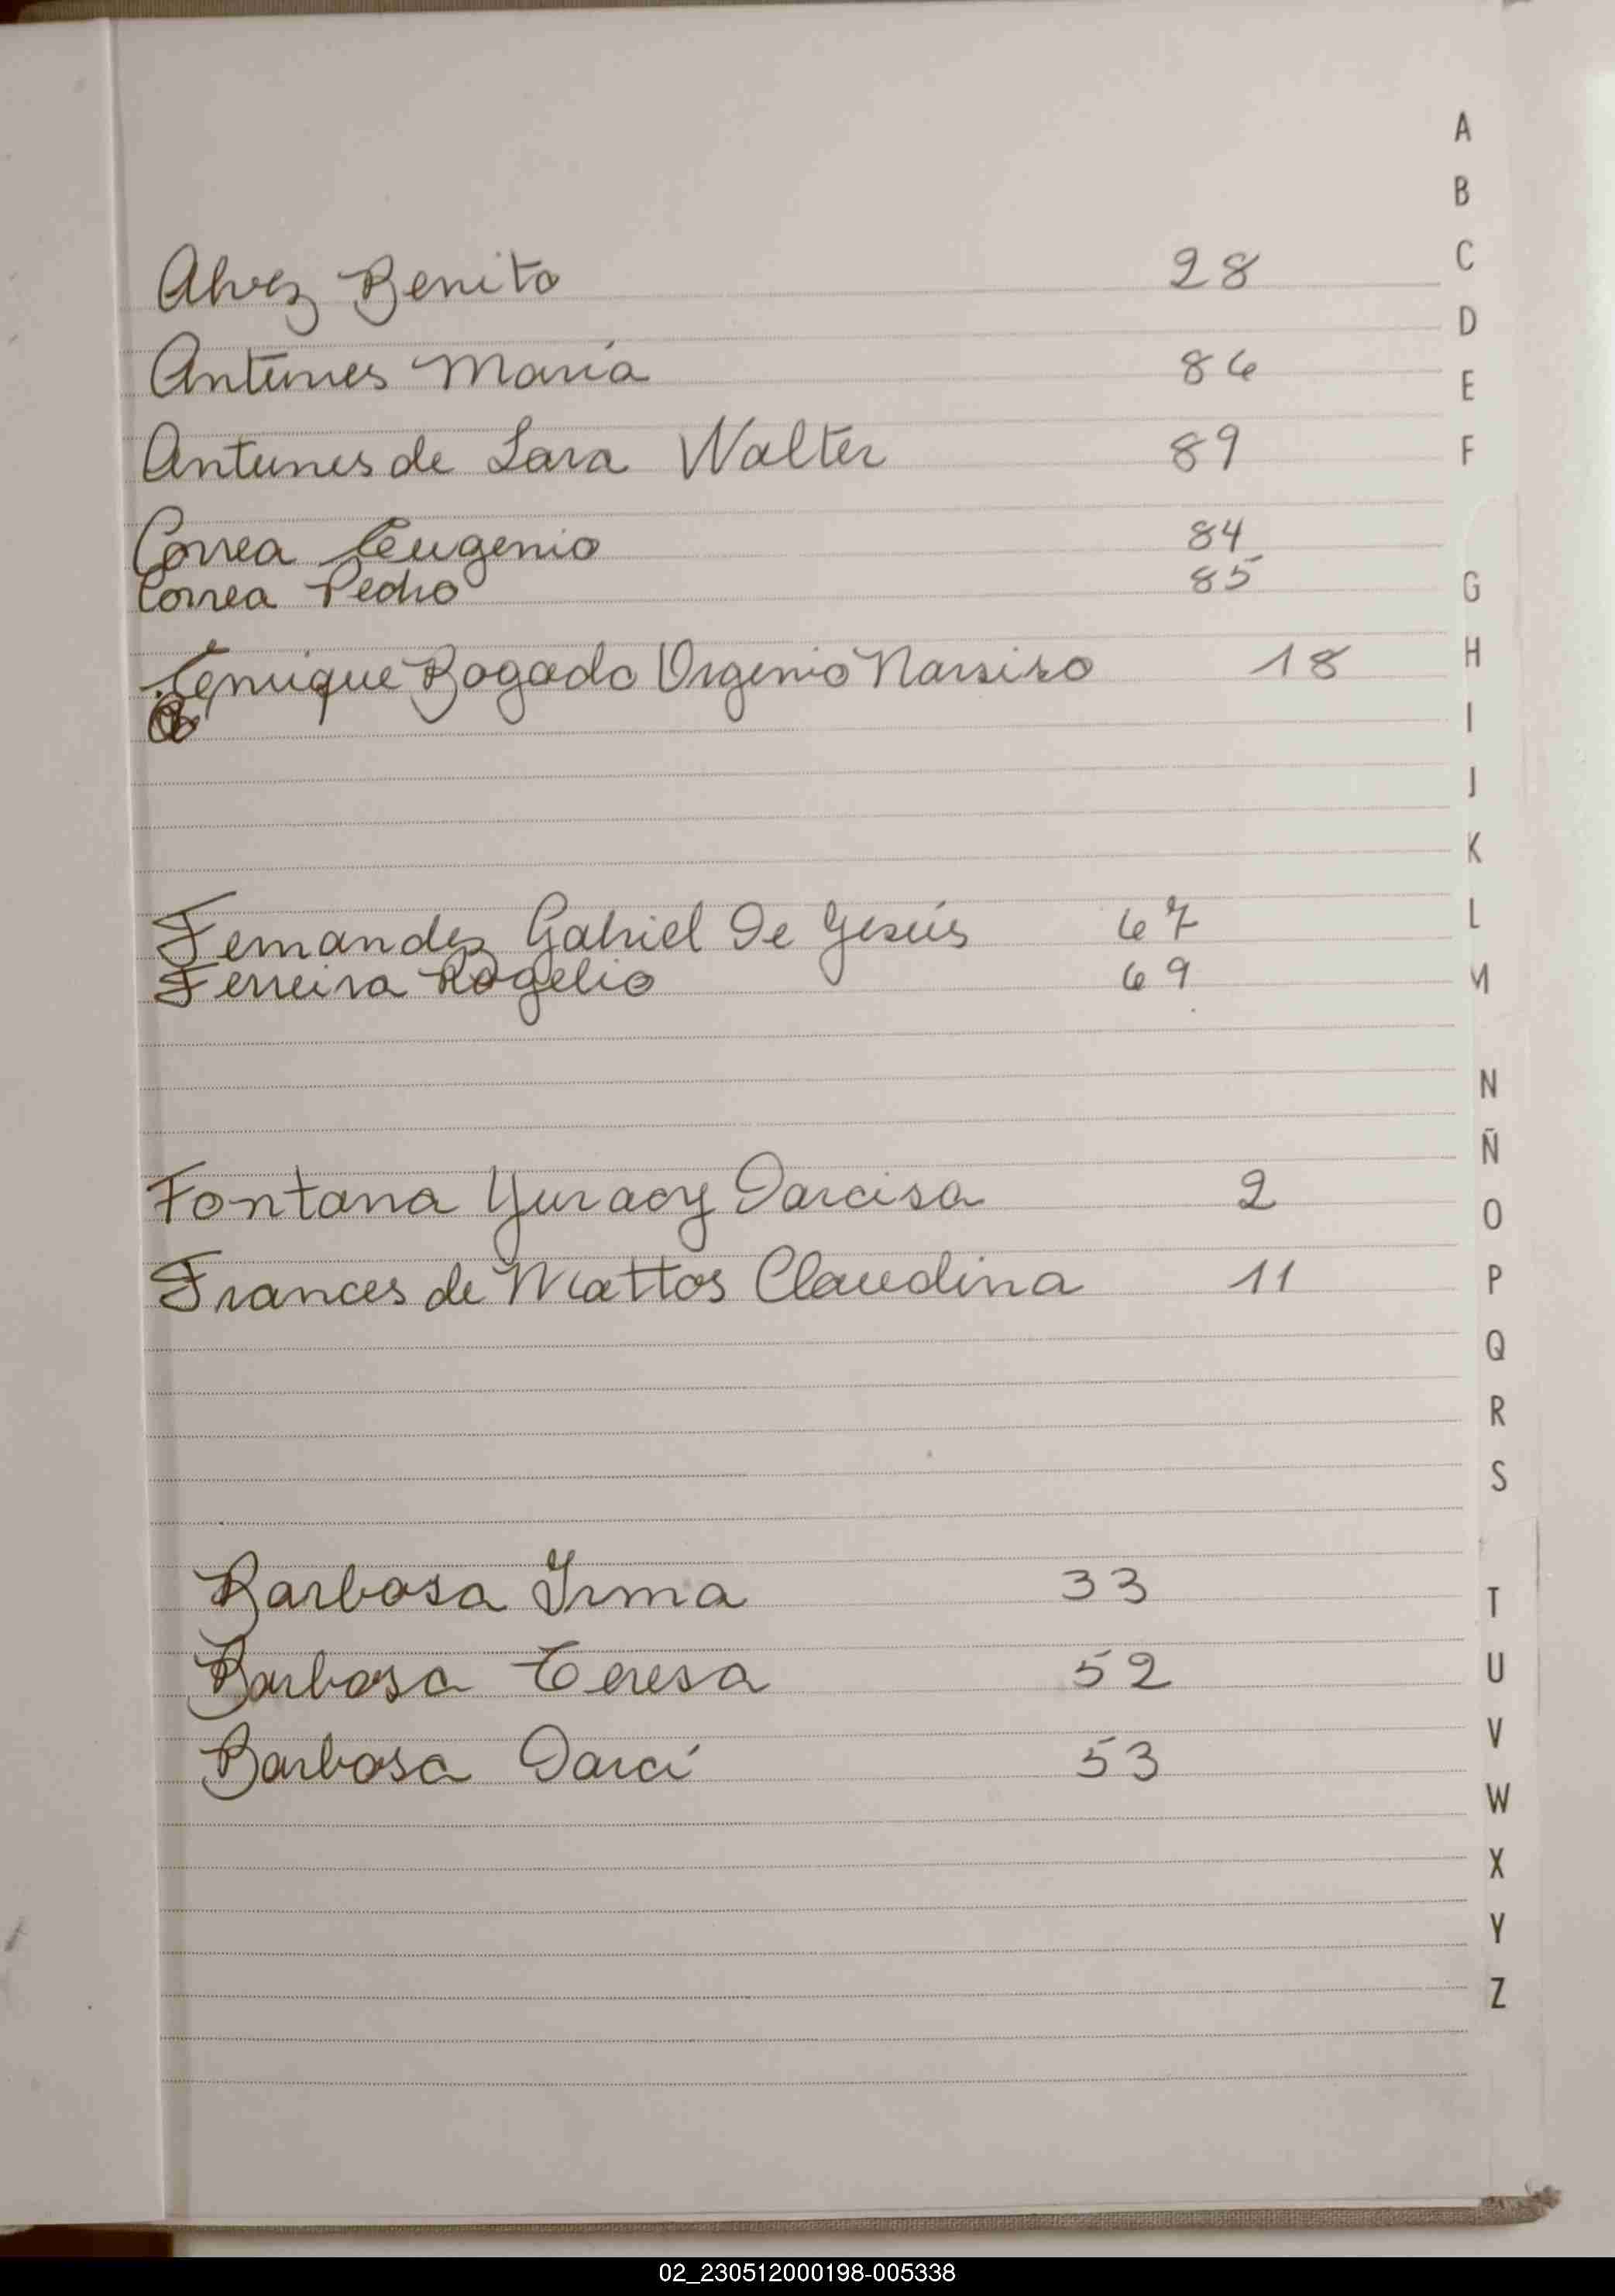 Alvez Benito 28
Antunes María 86
Antunes de Lara Walter 89
Correa Eugenio 84
Correa Pedro 85
Enrique Bogado Virgenio Narsiso 18
Fernandez Gabriel De Jesús 67
Ferreira Rogelio 69
Fontana Yuracy Darcisa 2
Frances de Mattos Claudina 11
Barbosa Irma 33
Barbosa Teresa 52
Barbosa Darcí 53
A
B
C
D
E
F
G
H
I
J
K
L
M
N
Ñ
O
P
Q
R
S
T
U
V
W
X
Y
Z
02_230512000198-005338